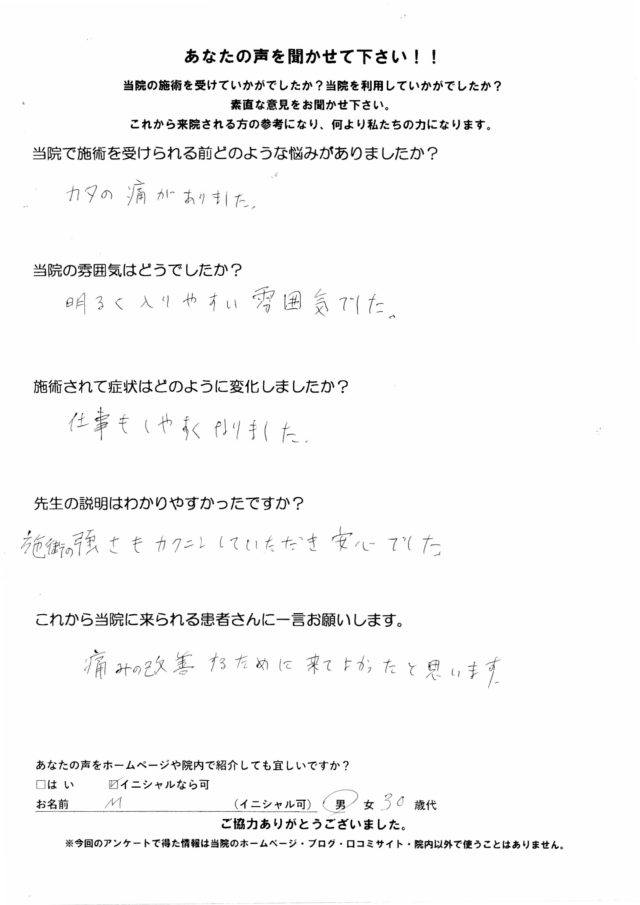 あなたの声を聞かせて下さい！！
当院の施術を受けていかがでしたか？当院を利用していかがでしたか？
素直な意見をお聞かせ下さい。
これから来院される方の参考になり、何より私たちの力になります。
当院で施術を受けられる前どのような悩みがありましたか？
カタの痛がありました。
当院の雰囲気はどうでしたか？
明るく入りやすい雰囲気でした。
施術されて症状はどのように変化しましたか？
仕事もしやすくなりました。
先生の説明はわかりやすかったですか？
施術の強さもカクニンしていただき安心でした
これから当院に来られる患者さんに一言お願いします。
痛みの改善するために来てよかったと思います
あなたの声をホームページや院内で紹介しても宜しいですか？
□はい ☑イニシャルなら可
お名前 M （イニシャル可） 男 女 30 歳代
ご協力ありがとうございました。
※今回のアンケートで得た情報は当院のホームページ・ブログ・口コミサイト・院内以外で使うことはありません。